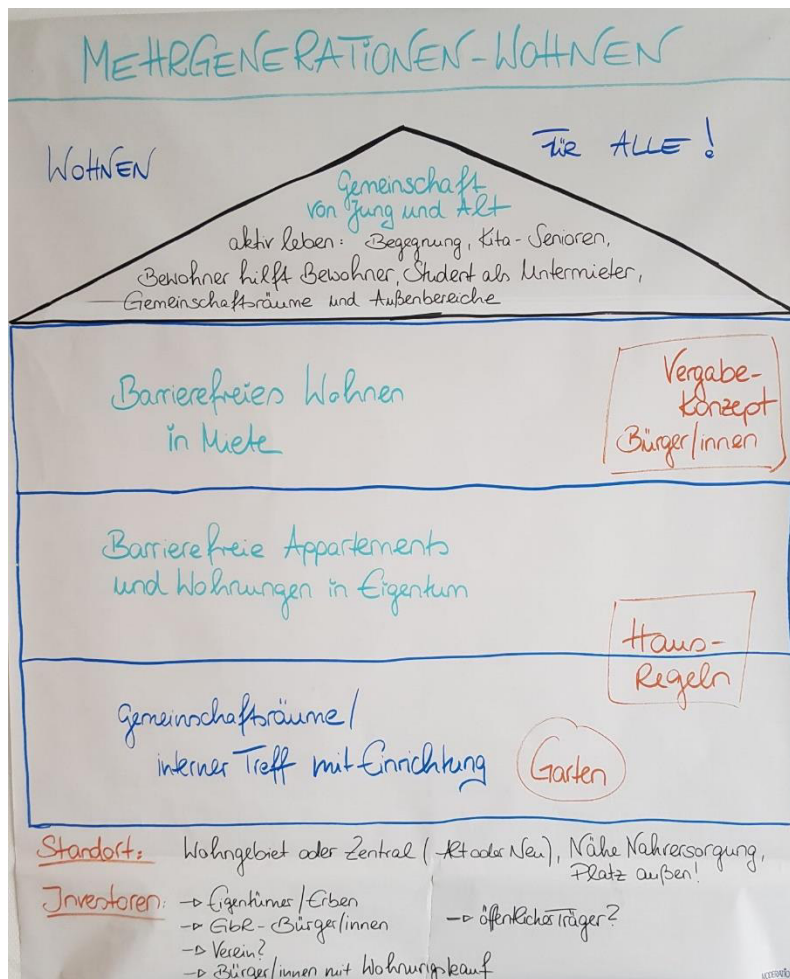 MEHRGENERATIONEN-WOHNEN
WOHNEN
Für ALLE!
Gemeinschaft
von Jung und Alt
aktiv leben: Begegnung, Kita-Senioren,
Bewohner hilft Bewohner, Student als Untermieter,
Gemeinschaftsräume und Außenbereiche
Barrierefreies Wohnen
in Miete
Vergabe-
Konzept
Bürger/innen
Barrierefreie Appartements
und Wohnungen in Eigentum
Haus-
Regeln
Gemeinschaftsräume/
interner Treff mit Einrichtung
Garten
Standort: Wohngebiet oder Zentral (Alt oder Neu), Nähe Nahversorgung,
Platz außen!
Investoren: → Eigentümer/Erben
→ GbR-Bürger/innen → öffentlicher Träger?
→ Verein?
→ Bürger/innen mit Wohnungskauf